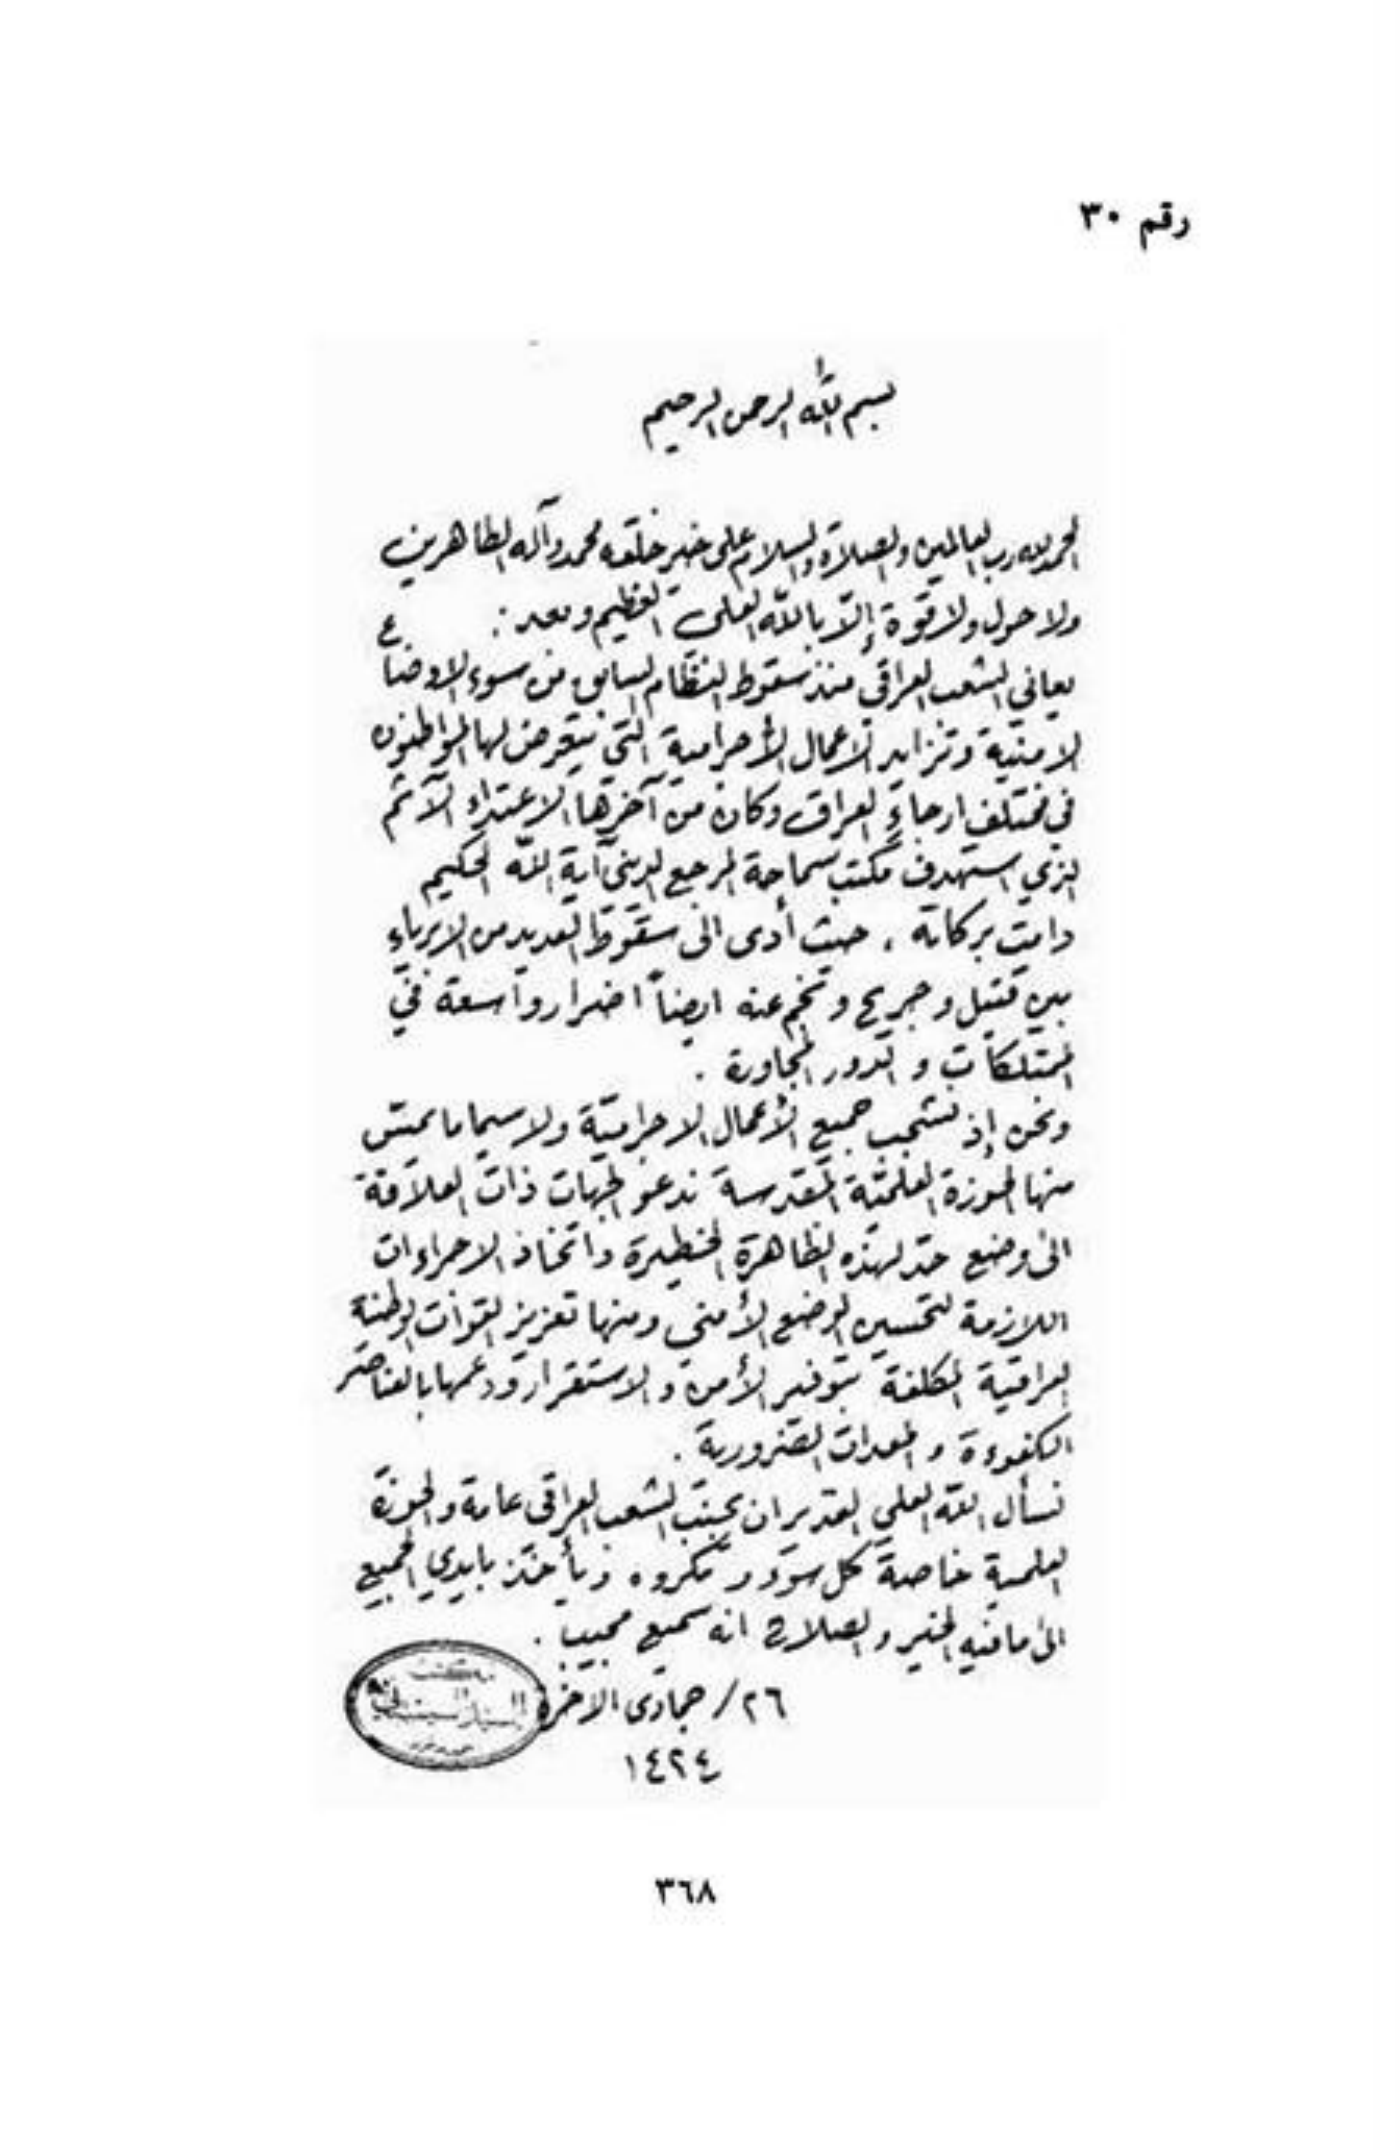 رقم ٣٠
بسم الله الرحمن الرحيم
الحمد لله رب العالمين والصلاة والسلام على خير خلقه محمد وآله الطاهرين
ولا حول ولا قوة إلّا بالله العلي العظيم وبعد :
يعاني الشعب العراقي منذ سقوط النظام السابق من سوء الاوضاع
الامنية وتزايد الاعمال الأجرامية التي يتعرض لها المواطنون
في مختلف ارجاء العراق وكان من آخرها الاعتداء الآثم
الذي استهدف مكتب سماحة المرجع الديني آية الله الحكيم
دامت بركاته ، حيث أدى الى سقوط العديد من الابرياء
بين قتيل وجريح ونجم عنه ايضاً اضرار واسعة في
الممتلكات والدور المجاورة .
ونحن إذ نشجب جميع الأعمال الاجراميّة ولا سيما ما يمسّ
منها الحوزة العلميّة المقدسة ندعو الجهات ذات العلاقة
الى وضع حد لهذه الظاهرة الخطيرة واتخاذ الاجراءات
اللازمة لتحسين الوضع الأمني ومنها تعزيز القوات الوطنية
العراقية المكلفة بتوفير الأمن والاستقرار ودعمها بالعناصر
الكفوءة والمعدات الضرورية .
نسأل الله العلي القدير ان يجنّب الشعب العراقي عامة والحوزة
العلمية خاصة كل سوء ومكروه ويأخذ بايدي الجميع
الى ما فيه الخير والصلاح انه سميع مجيب .
٢٦/ جمادى الاخرة
١٤٢٤
مكتب
السيد السيستاني
٣٦٨